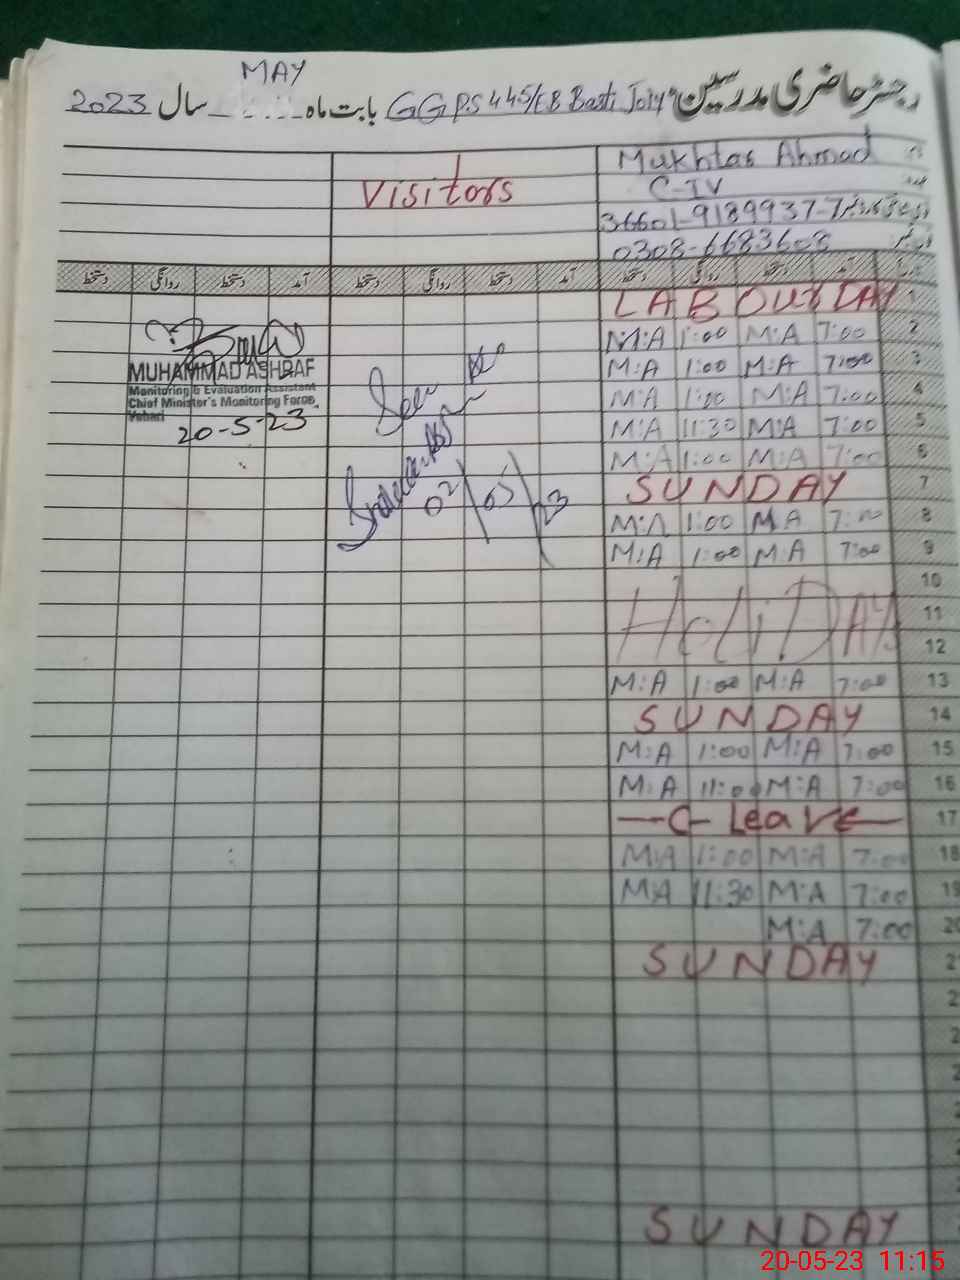 MAY
رجسٹر حاضری مدرسین GGPS 445/EB Basti Joiy بابت ماہ سال 2023
Mukhtar Ahmad
Visitors C-IV
36601-9189937-7
0308-6683608
آمد دستخط روانگی دستخط آمد دستخط روانگی دستخط آمد دستخط روانگی دستخط
LABOUR DAY 1
M:A 1:00 M:A 7:00 2
M:A 1:00 M:A 7:00 3
M:A 1:00 M:A 7:00 4
M:A 11:30 M:A 7:00 5
M:A 1:00 M:A 7:00 6
SUNDAY 7
M:A 1:00 M:A 7:00 8
M:A 1:00 M:A 7:00 9
10
HoLiDAY 11
12
M:A 1:00 M:A 7:00 13
SUNDAY 14
M:A 1:00 M:A 7:00 15
M:A 11:00 M:A 7:00 16
C- Leave 17
M:A 1:00 M:A 7:00 18
M:A 11:30 M:A 7:00 19
M:A 7:00 20
SUNDAY 21
SUNDAY
MUHAMMAD ASHRAF
Monitoring & Evaluation Assistant
Chief Minister's Monitoring Force,
Vehari
20-5-23
Seen
02/05/23
20-05-23 11:15